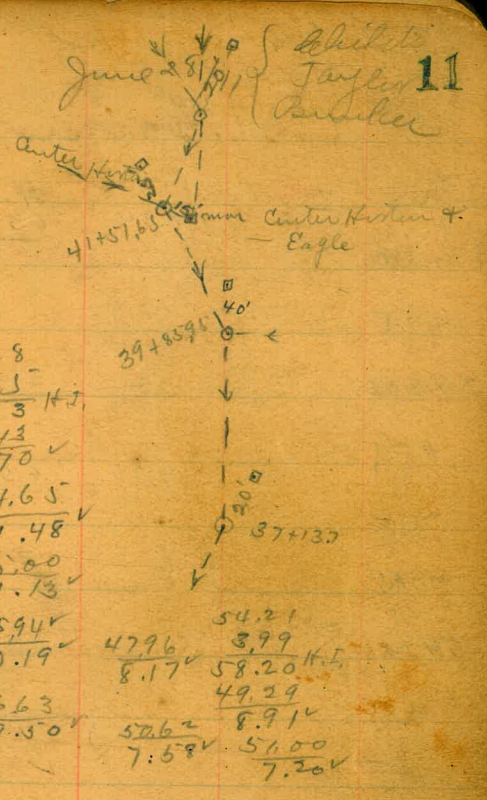 June 28/1911
Taylor
Bunker
11
Center Hosten
41+51.65
mon Center Hosten &
— Eagle
40'
39+85.95
20'
37+13.7
8
5
3 H.I.
70 ✓
4.65
.48 ✓
.00
.13 ✓
5.94 ✓
.19 ✓
6.63
.50 ✓
47.96
8.17 ✓
50.62
7.58 ✓
54.21
3.99
58.20 H.I.
49.29
8.91 ✓
51.00
7.20 ✓